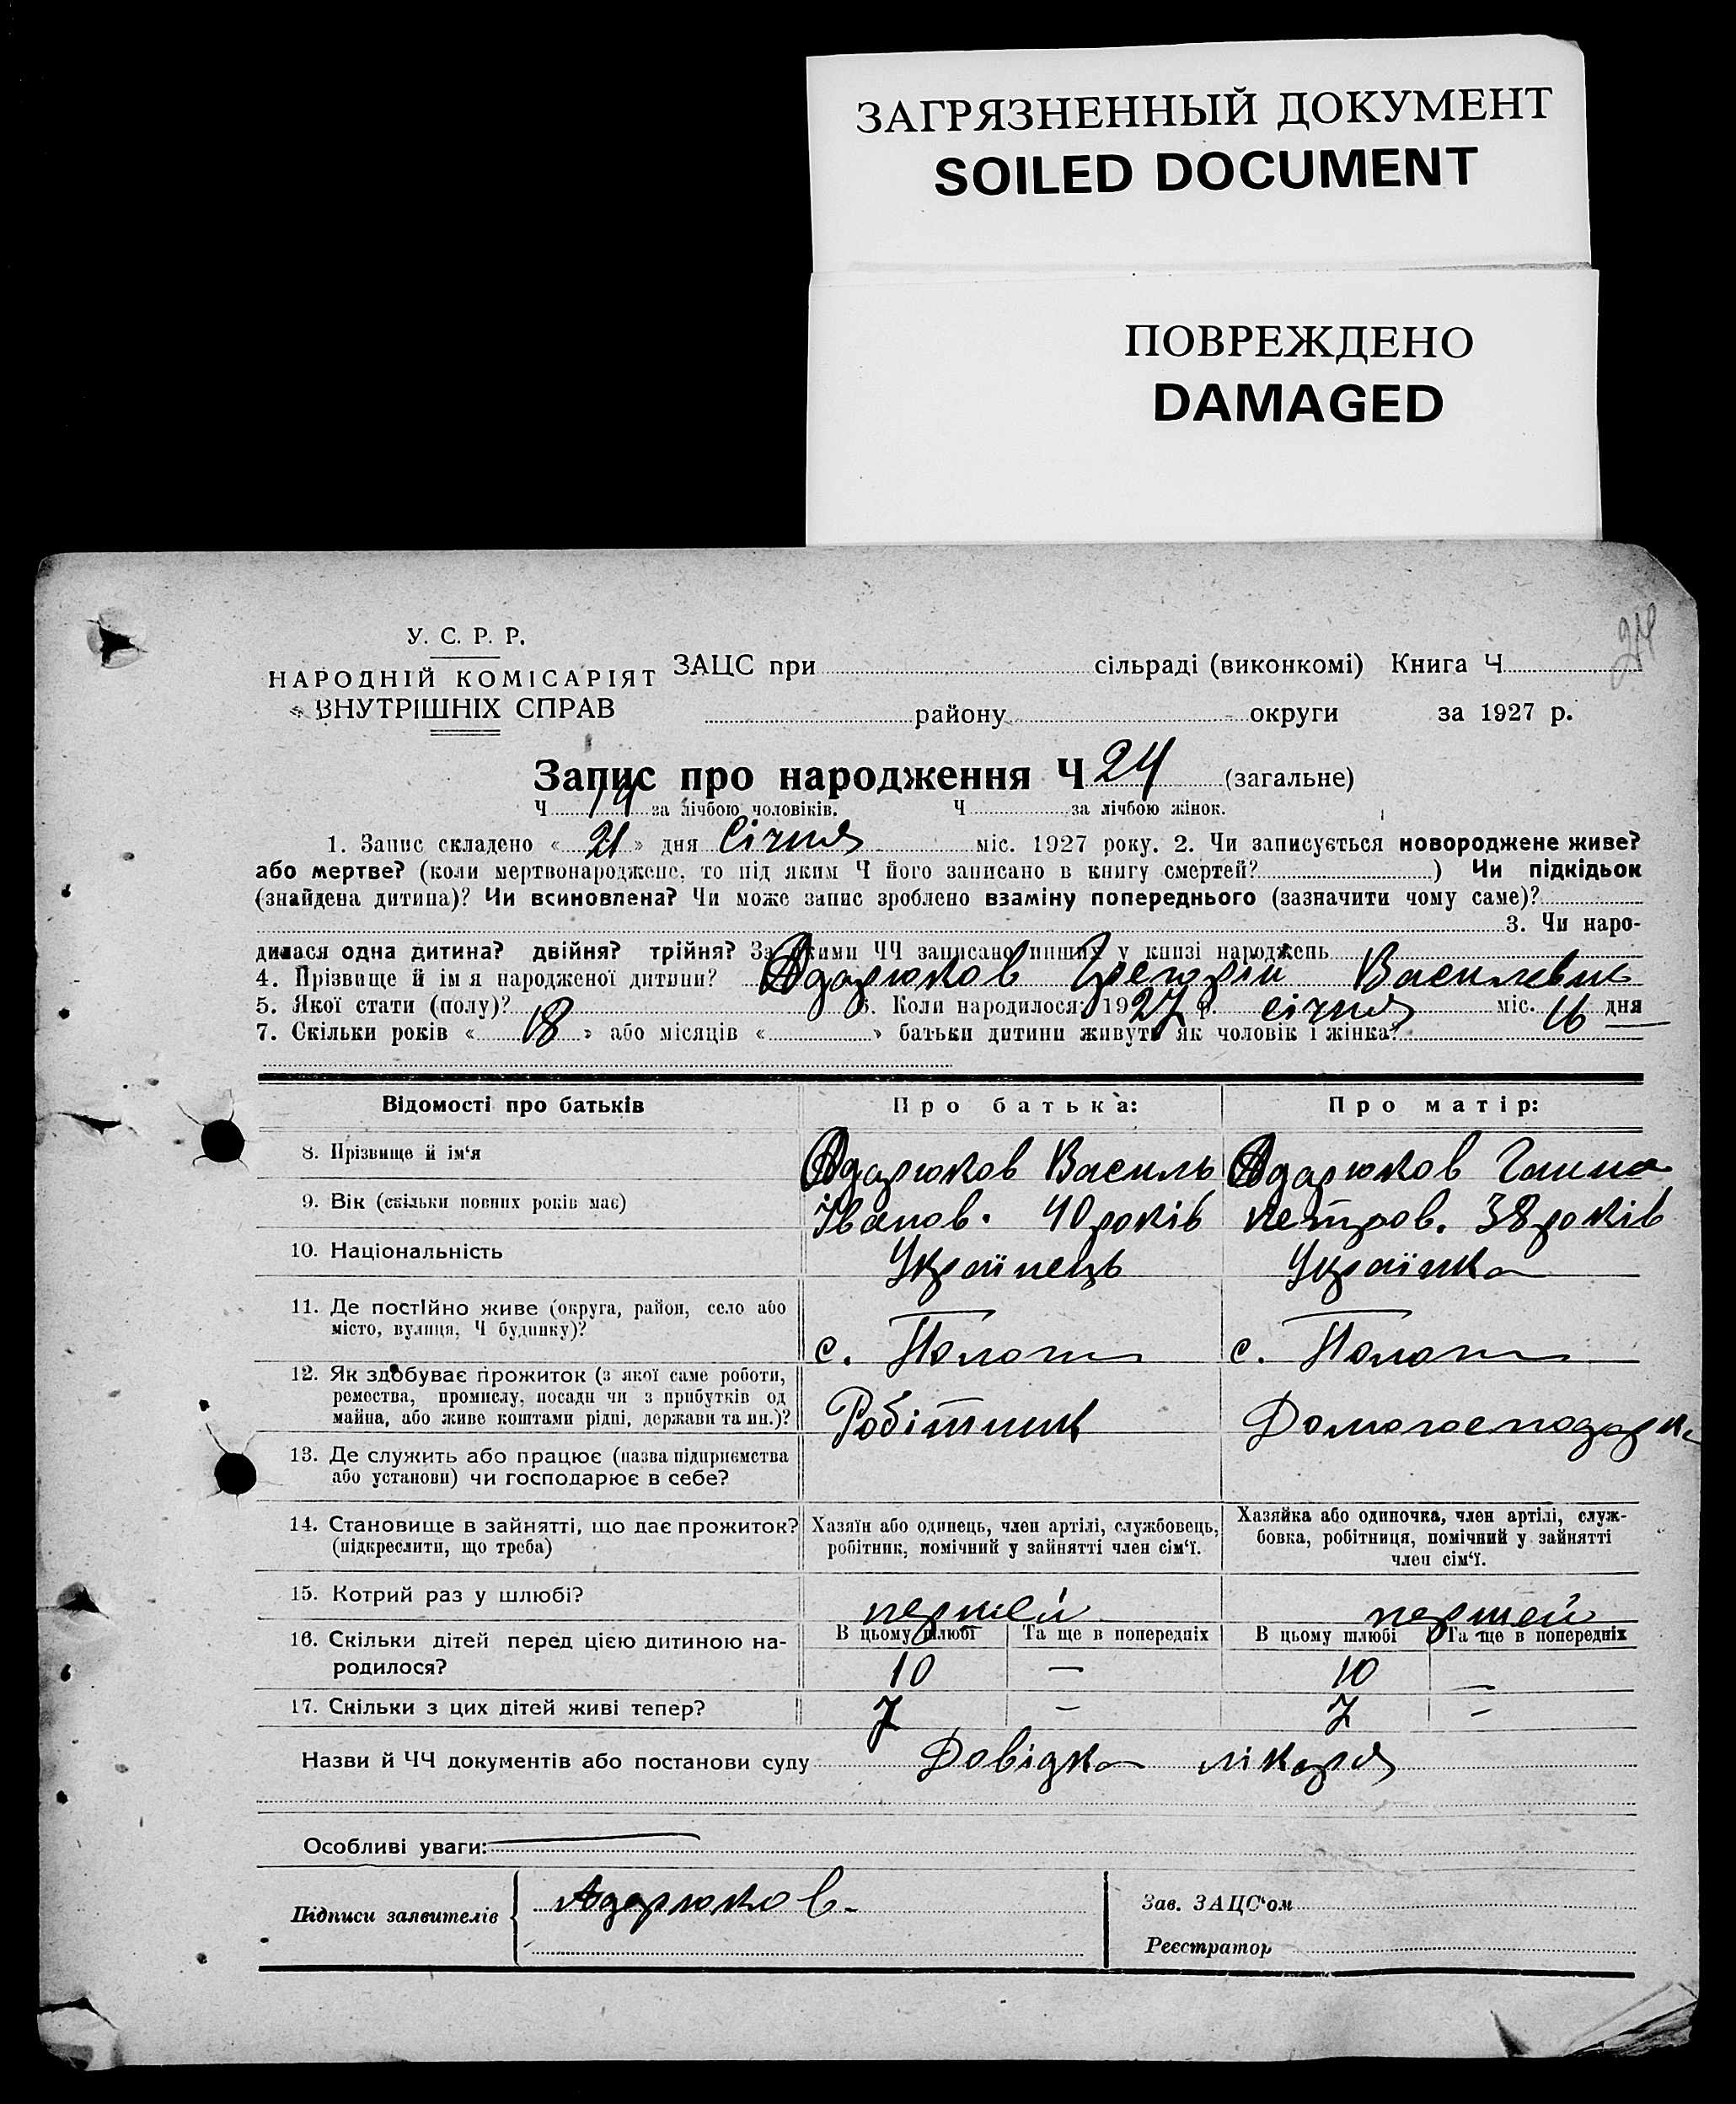 ЗАГРЯЗНЕННЫЙ ДОКУМЕНТ
SOILED DOCUMENT
ПОВРЕЖДЕНО
DAMAGED
24
У. С. Р. Р.
НАРОДНІЙ КОМІСАРІЯТ
ВНУТРІШНІХ СПРАВ
ЗАЦС при сільраді (виконкомі) Книга Ч
району округи за 1927 р.
Запис про народження Ч 24 (загальне)
Ч 14 за лічбою чоловіків. Ч за лічбою жінок.
1. Запис складено « 21 » дня Січня міс. 1927 року. 2. Чи записується новороджене живе?
або мертве? (коли мертвонароджене, то під яким Ч його записано в книгу смертей? ) Чи підкідьок
(знайдена дитина)? Чи всиновлена? Чи може запис зроблено взаміну попереднього (зазначити чому саме)?
3. Чи наро-
дилася одна дитина? двійня? трійня? За якими ЧЧ записано инших у книзі народжень
4. Прізвище й ім я народженої дитини? Адарюков Григорій Василевич
5. Якої стати (полу)? 6. Коли народилося? 1927 р. січня міс. 16 дня
7. Скільки років « 18 » або місяців « » батьки дитини живуть як чоловік і жінка?
Відомості про батьків Про батька: Про матір:
8. Прізвище й ім‘я Адарюков Василь Адарюков Ганна
9. Вік (скільки повних років має) Іванов. 40 років петров. 38 років
10. Національність Українець Українка
11. Де постійно живе (округа, район, село або
місто, вулиця, Ч будинку)? с. Пологи с. Пологи
12. Як здобуває прожиток (з якої саме роботи,
ремества, промислу, посади чи з прибутків од
майна, або живе коштами рідні, держави та ин.)? Робітник Домогосподарка
13. Де служить або працює (назва підприємства
або установи) чи господарює в себе?
14. Становище в зайнятті, що дає прожиток?
(підкреслити, що треба)
Хазяїн або одинець, член артілі, службовець,
робітник, помічний у зайнятті член сім‘ї.
Хазяйка або одиночка, член артілі, служ-
бовка, робітниця, помічний у зайнятті
член сім‘ї.
15. Котрий раз у шлюбі? першей першей
16. Скільки дітей перед цією дитиною на-
родилося?
В цьому шлюбі Та ще в попередніх В цьому шлюбі Та ще в попередніх
10 — 10 —
17. Скільки з цих дітей живі тепер? 7 — 7 —
Назви й ЧЧ документів або постанови суду Довідка лікаря
Особливі уваги:
Підписи заявителів Адарюков.
Зав. ЗАЦС‘ом
Реєстратор